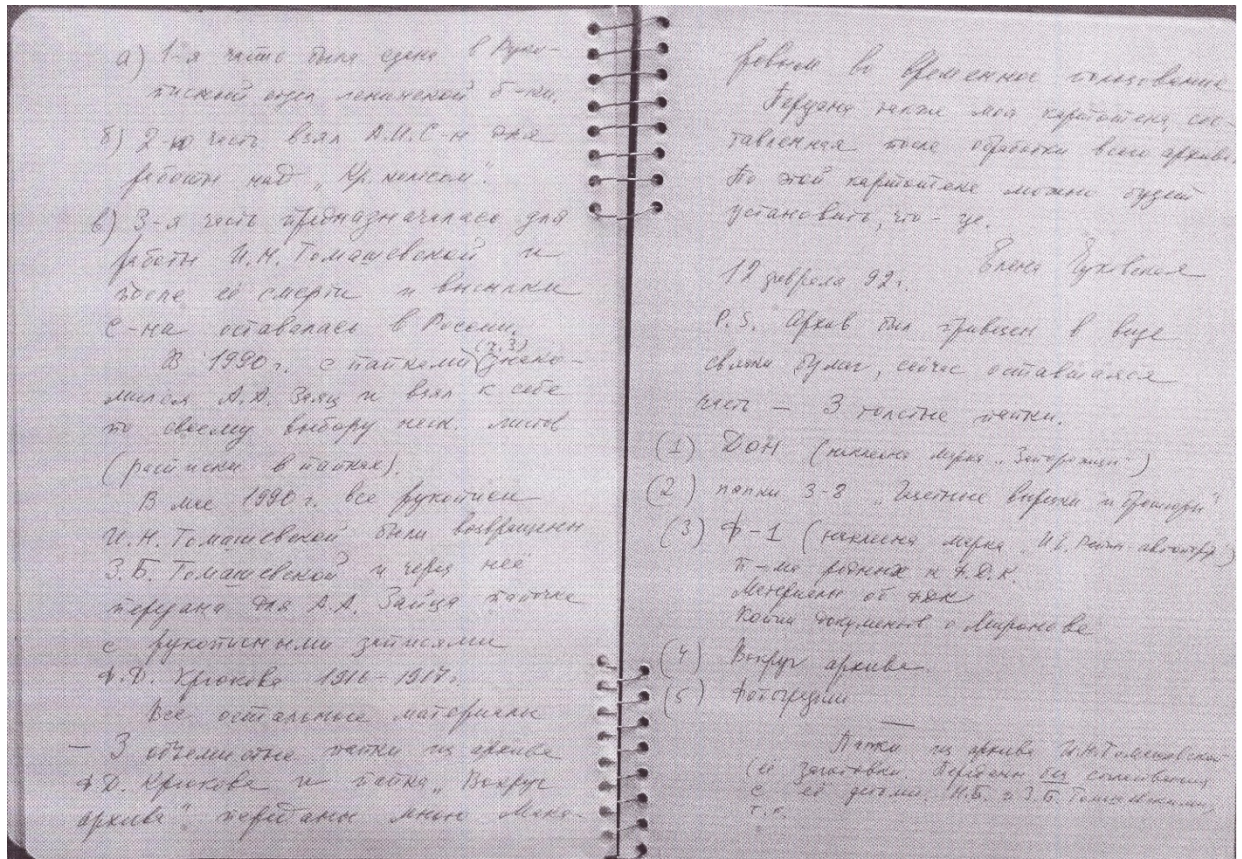 а) 1-я часть была сдана в Руко-
писный отдел ленинской б-ки.
б) 2-ю часть взял А.И.С-н для
работы над „Кр. колесом".
в) 3-я часть предназначалась для
работы И.Н. Томашевской и
после её смерти и высылки
С-на оставалась в России.
В 1990 г. с папками (ч.3) знако-
мился А.А. Заяц и взял к себе
по своему выбору неск. листов
(расписки в папках).
В мае 1990 г. все рукописи
И.Н. Томашевской были возвращены
З.Б. Томашевской и через неё
передана для А.А. Зайца папочка
с рукописными записями
Ф.Д. Крюкова 1916-1917г.
Все остальные материалы
— 3 объемистые папки из архива
Ф.Д. Крюкова и папка „Вокруг
архива" переданы мною Мака-
ровым во временное пользование
Передана также моя картотека, сос-
тавленная после обработки всего архива.
По этой картотеке можно будет
установить, что - где.
Елена Чуковская
12 февраля 92г.
P.S. Архив был привезен в виде
связки бумаг, сейчас оставшаяся
часть — 3 толстые папки.
(1) ДОН (наклеена марка „Запорожцы")
(2) папки 3-8 „Газетные вырезки и брошюры"
(3) Ф-1 (наклеена марка „И.Е. Репин-автопортр.")
п-ма родных к Ф.Д.К.
Материалы от ФДК
Копии документов о Миронове
(4) Вокруг архива.
(5) Фотографии
—
Папки из архива И.Н. Томашевской
(её заготовки. Переданы без согласования
с её детьми. Н.Б. и З.Б. Томашевскими,